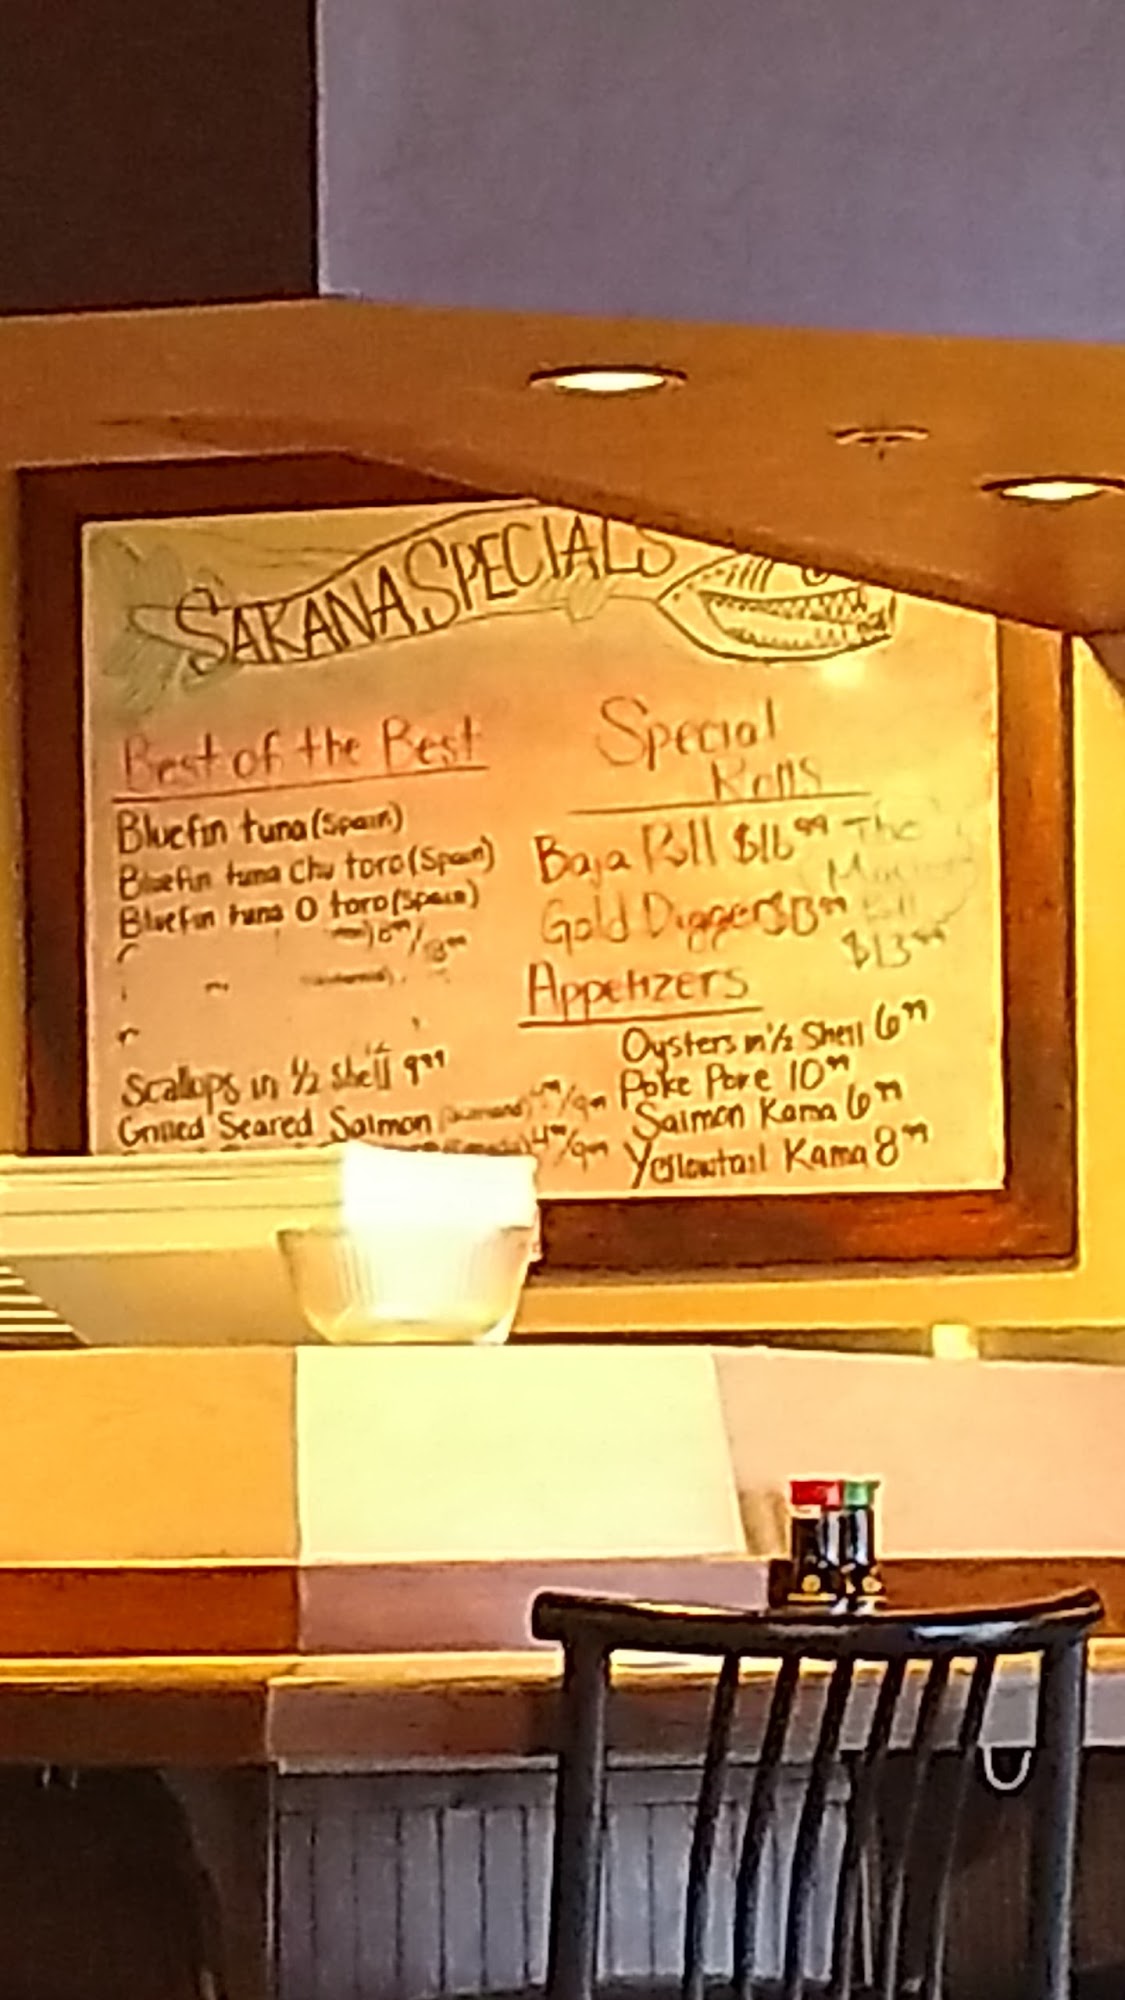 SAKANA SPECIALS
Best of the Best
Bluefin tuna (Spain)
Bluefin tuna Chu toro (Spain)
Bluefin tuna O toro (Spain)
Scallops in 1/2 Shell 9.99
Grilled Seared Salmon
Special
Rolls
Baja Roll $16.99
Gold Digger
The
Roll
$13.99
Appetizers
Oysters in 1/2 Shell 6.99
Poke Poke 10.99
Salmon Kama 6.99
Yellowtail Kama 8.99